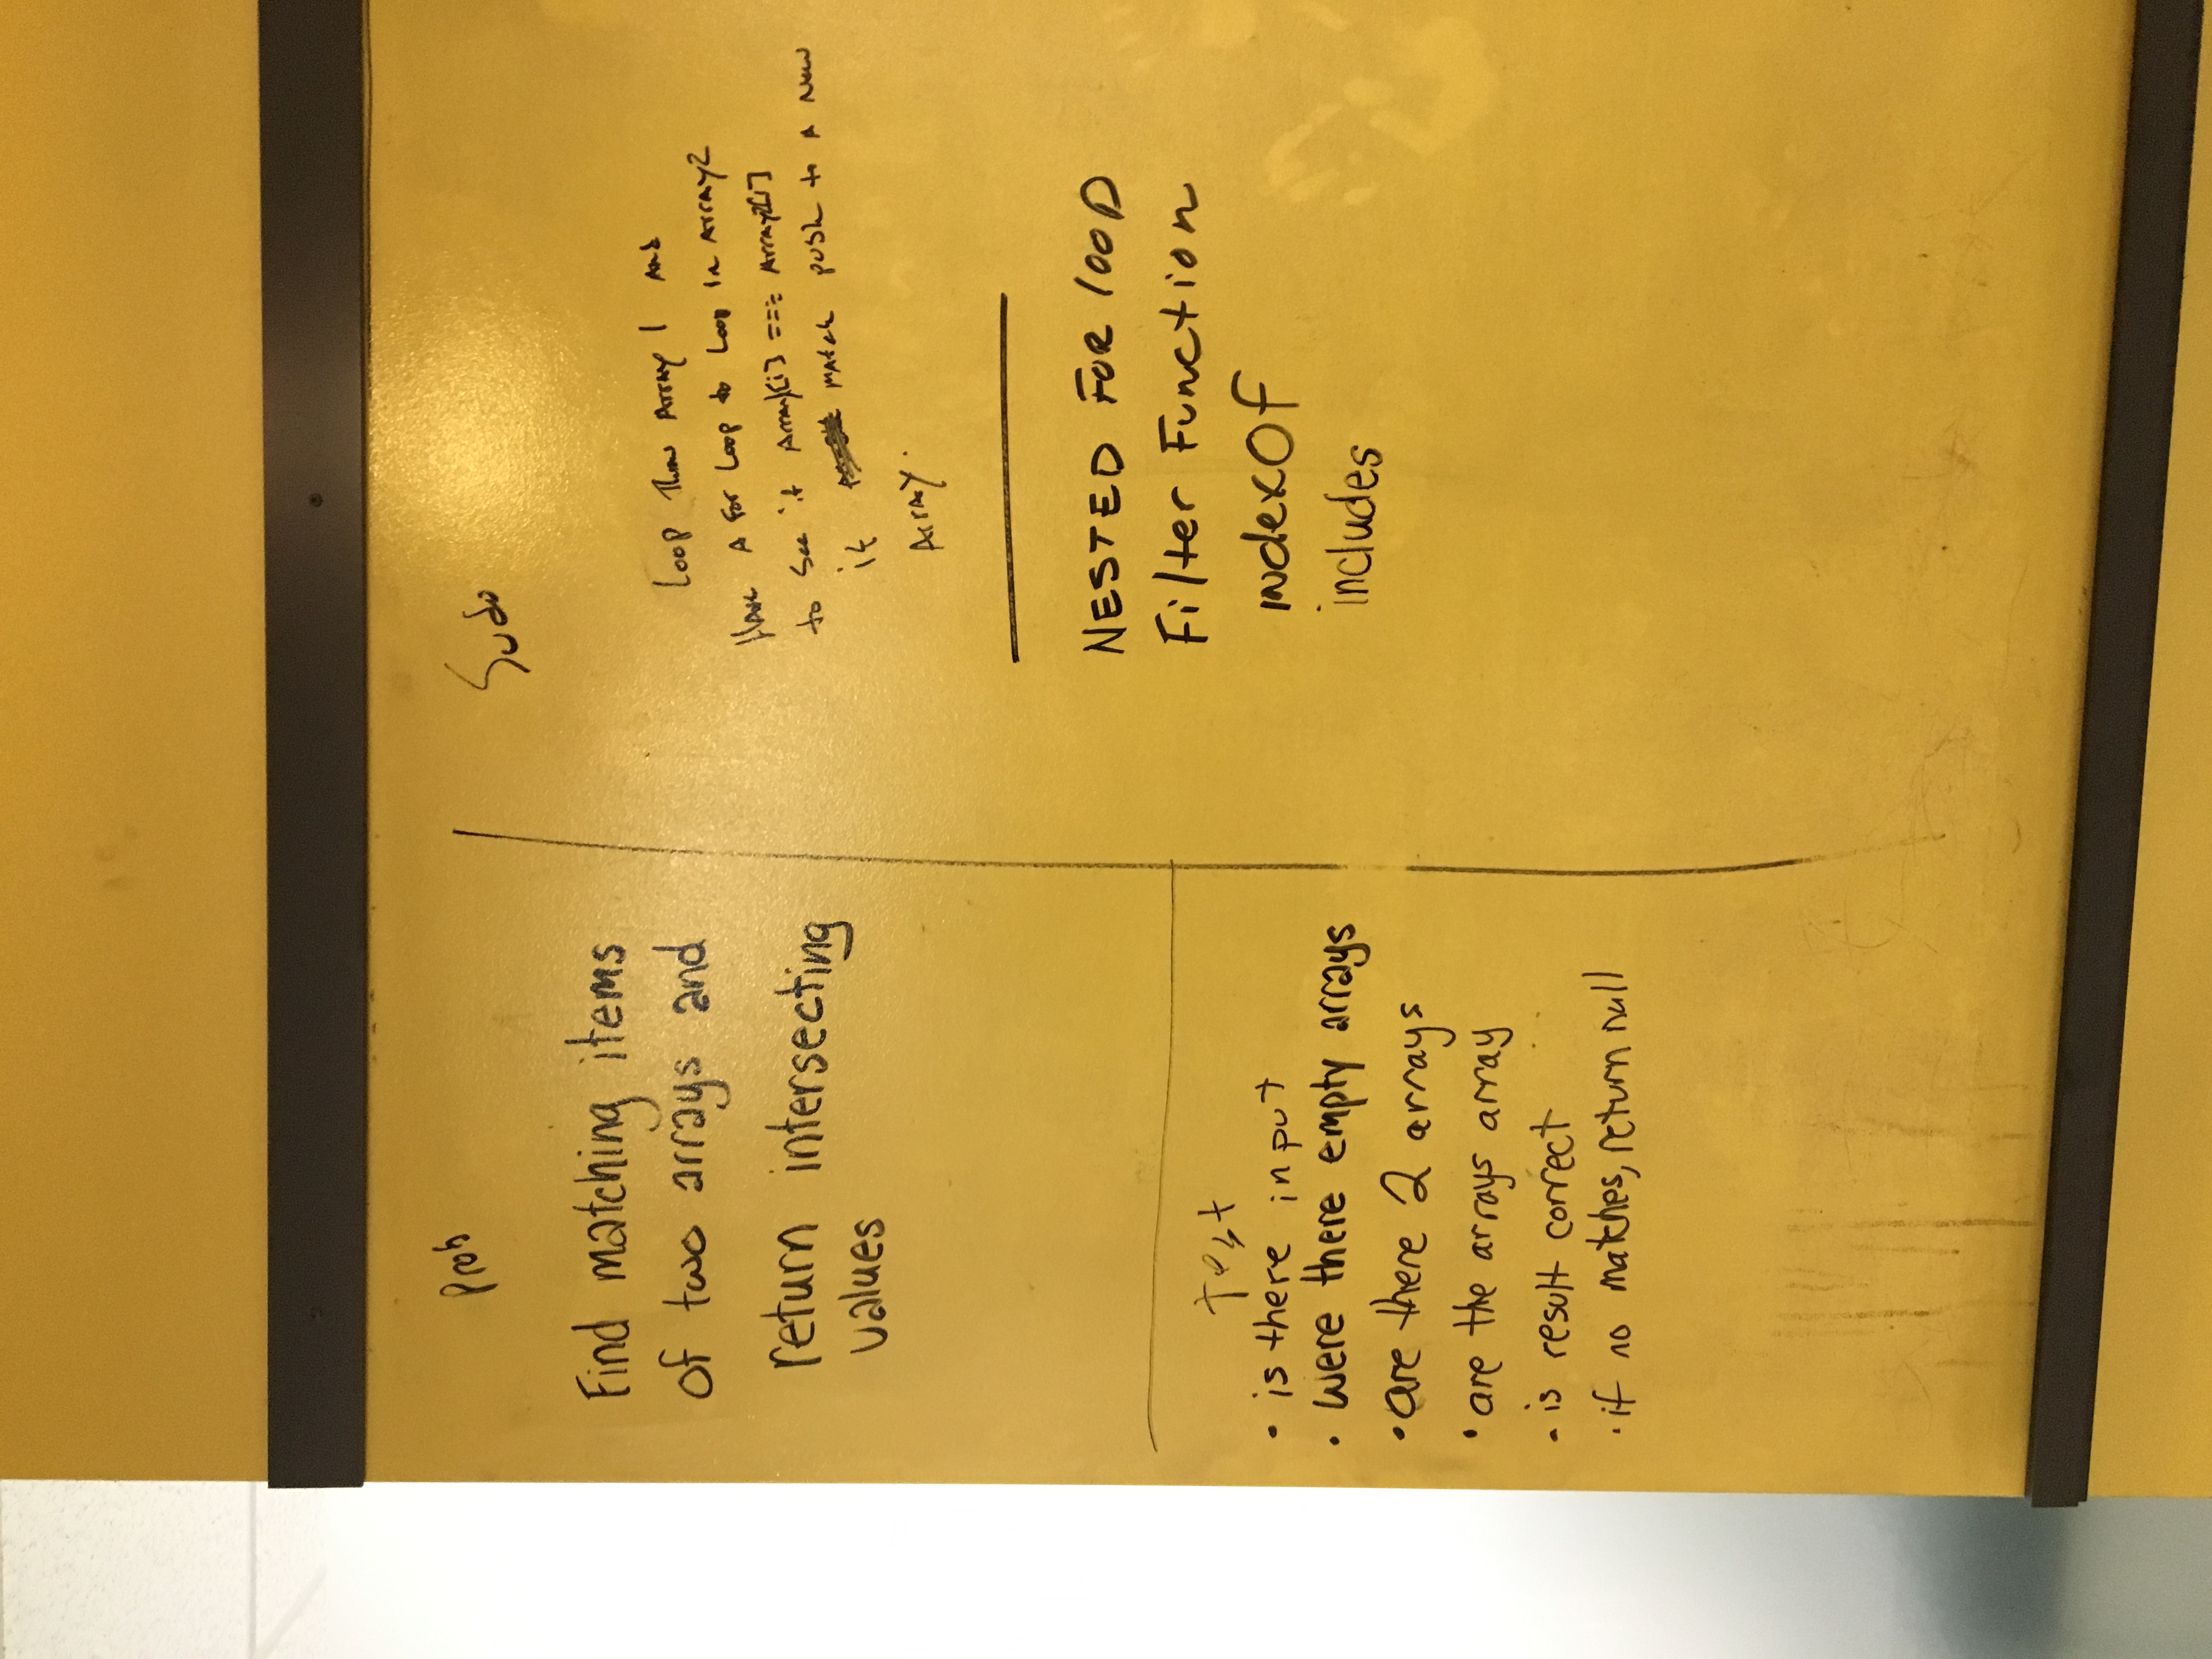 Prob
Find matching items
of two arrays and
return intersecting
values
Test
• is there input
• were there empty arrays
• are there 2 arrays
• are the arrays array
• is result correct
• if no matches, return null
Sudo
Loop Thru Array 1 And
Have A For Loop to Loop In Array2
to see if Array[i] === Array2[i]
if match push to A New
Array.
NESTED FOR lOOP
Filter Function
indexOf
includes